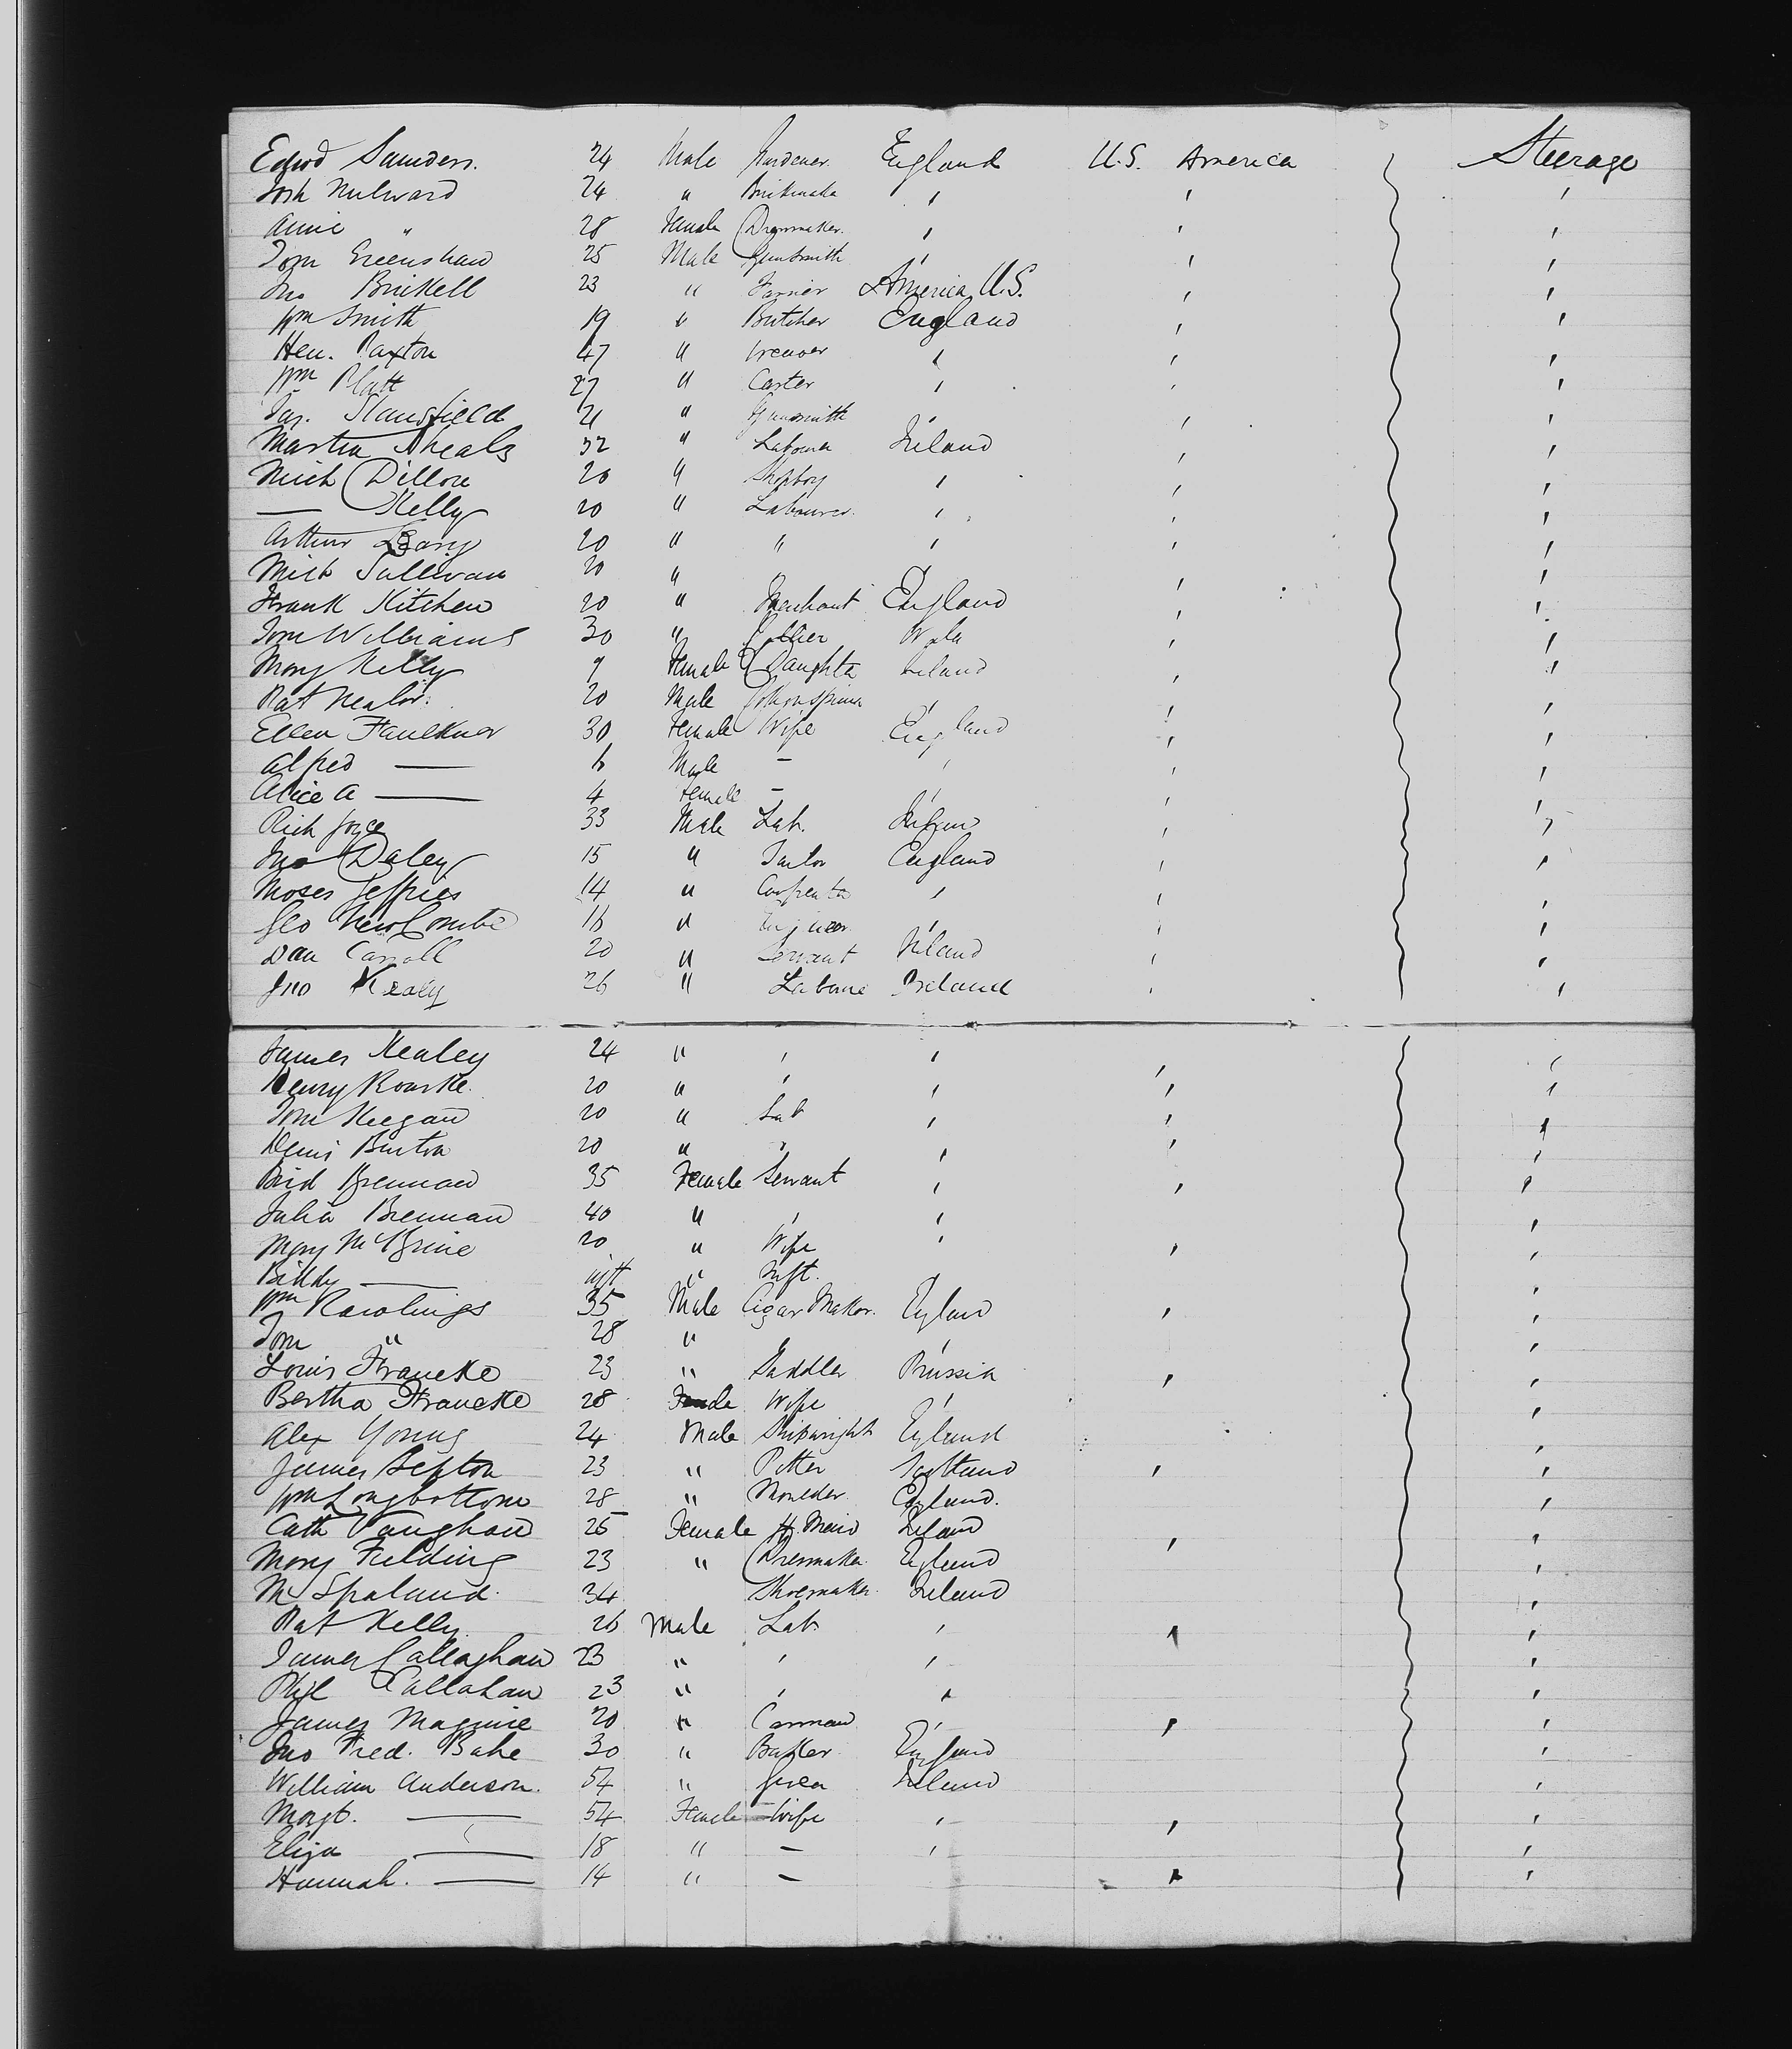 Edwd Saunders. 24 Male Gardener England U.S. America Steerage
Josh Milward 24 " Brickmaker " " "
Annie " 28 Female Dressmaker. " " "
Tom Greenshaw 25 Male Gunsmith " " "
Jno Brickell 23 " Farrier America U.S. " "
Wm Smith 19 " Butcher England " "
Hen. Paxton 47 " Weaver " " "
Wm Platt 27 " Carter " " "
Jas. Stansfield 21 " Gunsmith " " "
Martin Sheals 32 " Labourer Ireland " "
Mich Dillon 20 " Shopboy " " "
— Kelly 20 " Labourer. " " "
Arthur Leary 20 " " " " "
Mich Sullivan 20 " " " " "
Frank Kitchen 20 " Merchant England " "
Tom Williams 30 " Collier Wales " "
Mary Kelly 9 Female Daughter Ireland " "
Pat Nealor. 20 Male Cottonspinner " " "
Ellen Faulkner 30 Female Wife England " "
Alfred — 6 Male - " " "
Alice A — 4 Female - " " "
Rich Joyce 33 Male Lab. Ireland " "
Jno Daley 15 " Tailor England " "
Moses Jeffries 14 " Carpenter " " "
Geo Newcombe 16 " Engineer " " "
Dan Carroll 20 " Servant Ireland " "
Jno Kealy 26 " Laboure Ireland " "
James Kealey 24 " " " " "
Henry Rourke. 20 " " " " "
Tom Keegan 20 " Lab " " "
Denis Burton 20 " " " " "
Brid Brennan 35 Female Servant " " "
Julia Brennan 40 " " " "
Mary McBrine 20 " Wife " " "
Biddy — inft " Inft. " "
Wm Rawlings 35 Male Cigar Maker. England " "
Tom " 28 " " "
Louis Francke 23 " Saddler Prussia " "
Bertha Francke 28 Female Wife " "
Alex Young 24 Male Shipwright England
James Sefton 23 " Potter Scotland " "
Wm Longbottom 28 " Moulder England. "
Cath Vaughan 25 Female H. Maid Ireland " "
Mary Fielding 23 " Dressmaker England "
M Spaland. 34 Shoemaker. Ireland "
Pat Kelly 26 Male Lab. " " "
James Callaghan 23 " " " "
Phil Callahan 23 " " " "
James Maguire 20 " Carman " " "
Jno Fred. Bake 30 " Baker England "
William Anderson. 54 " Ireland "
Margt. — 54 Female Wife " " "
Eliza — 18 " - " "
Hannah. — 14 " - " "